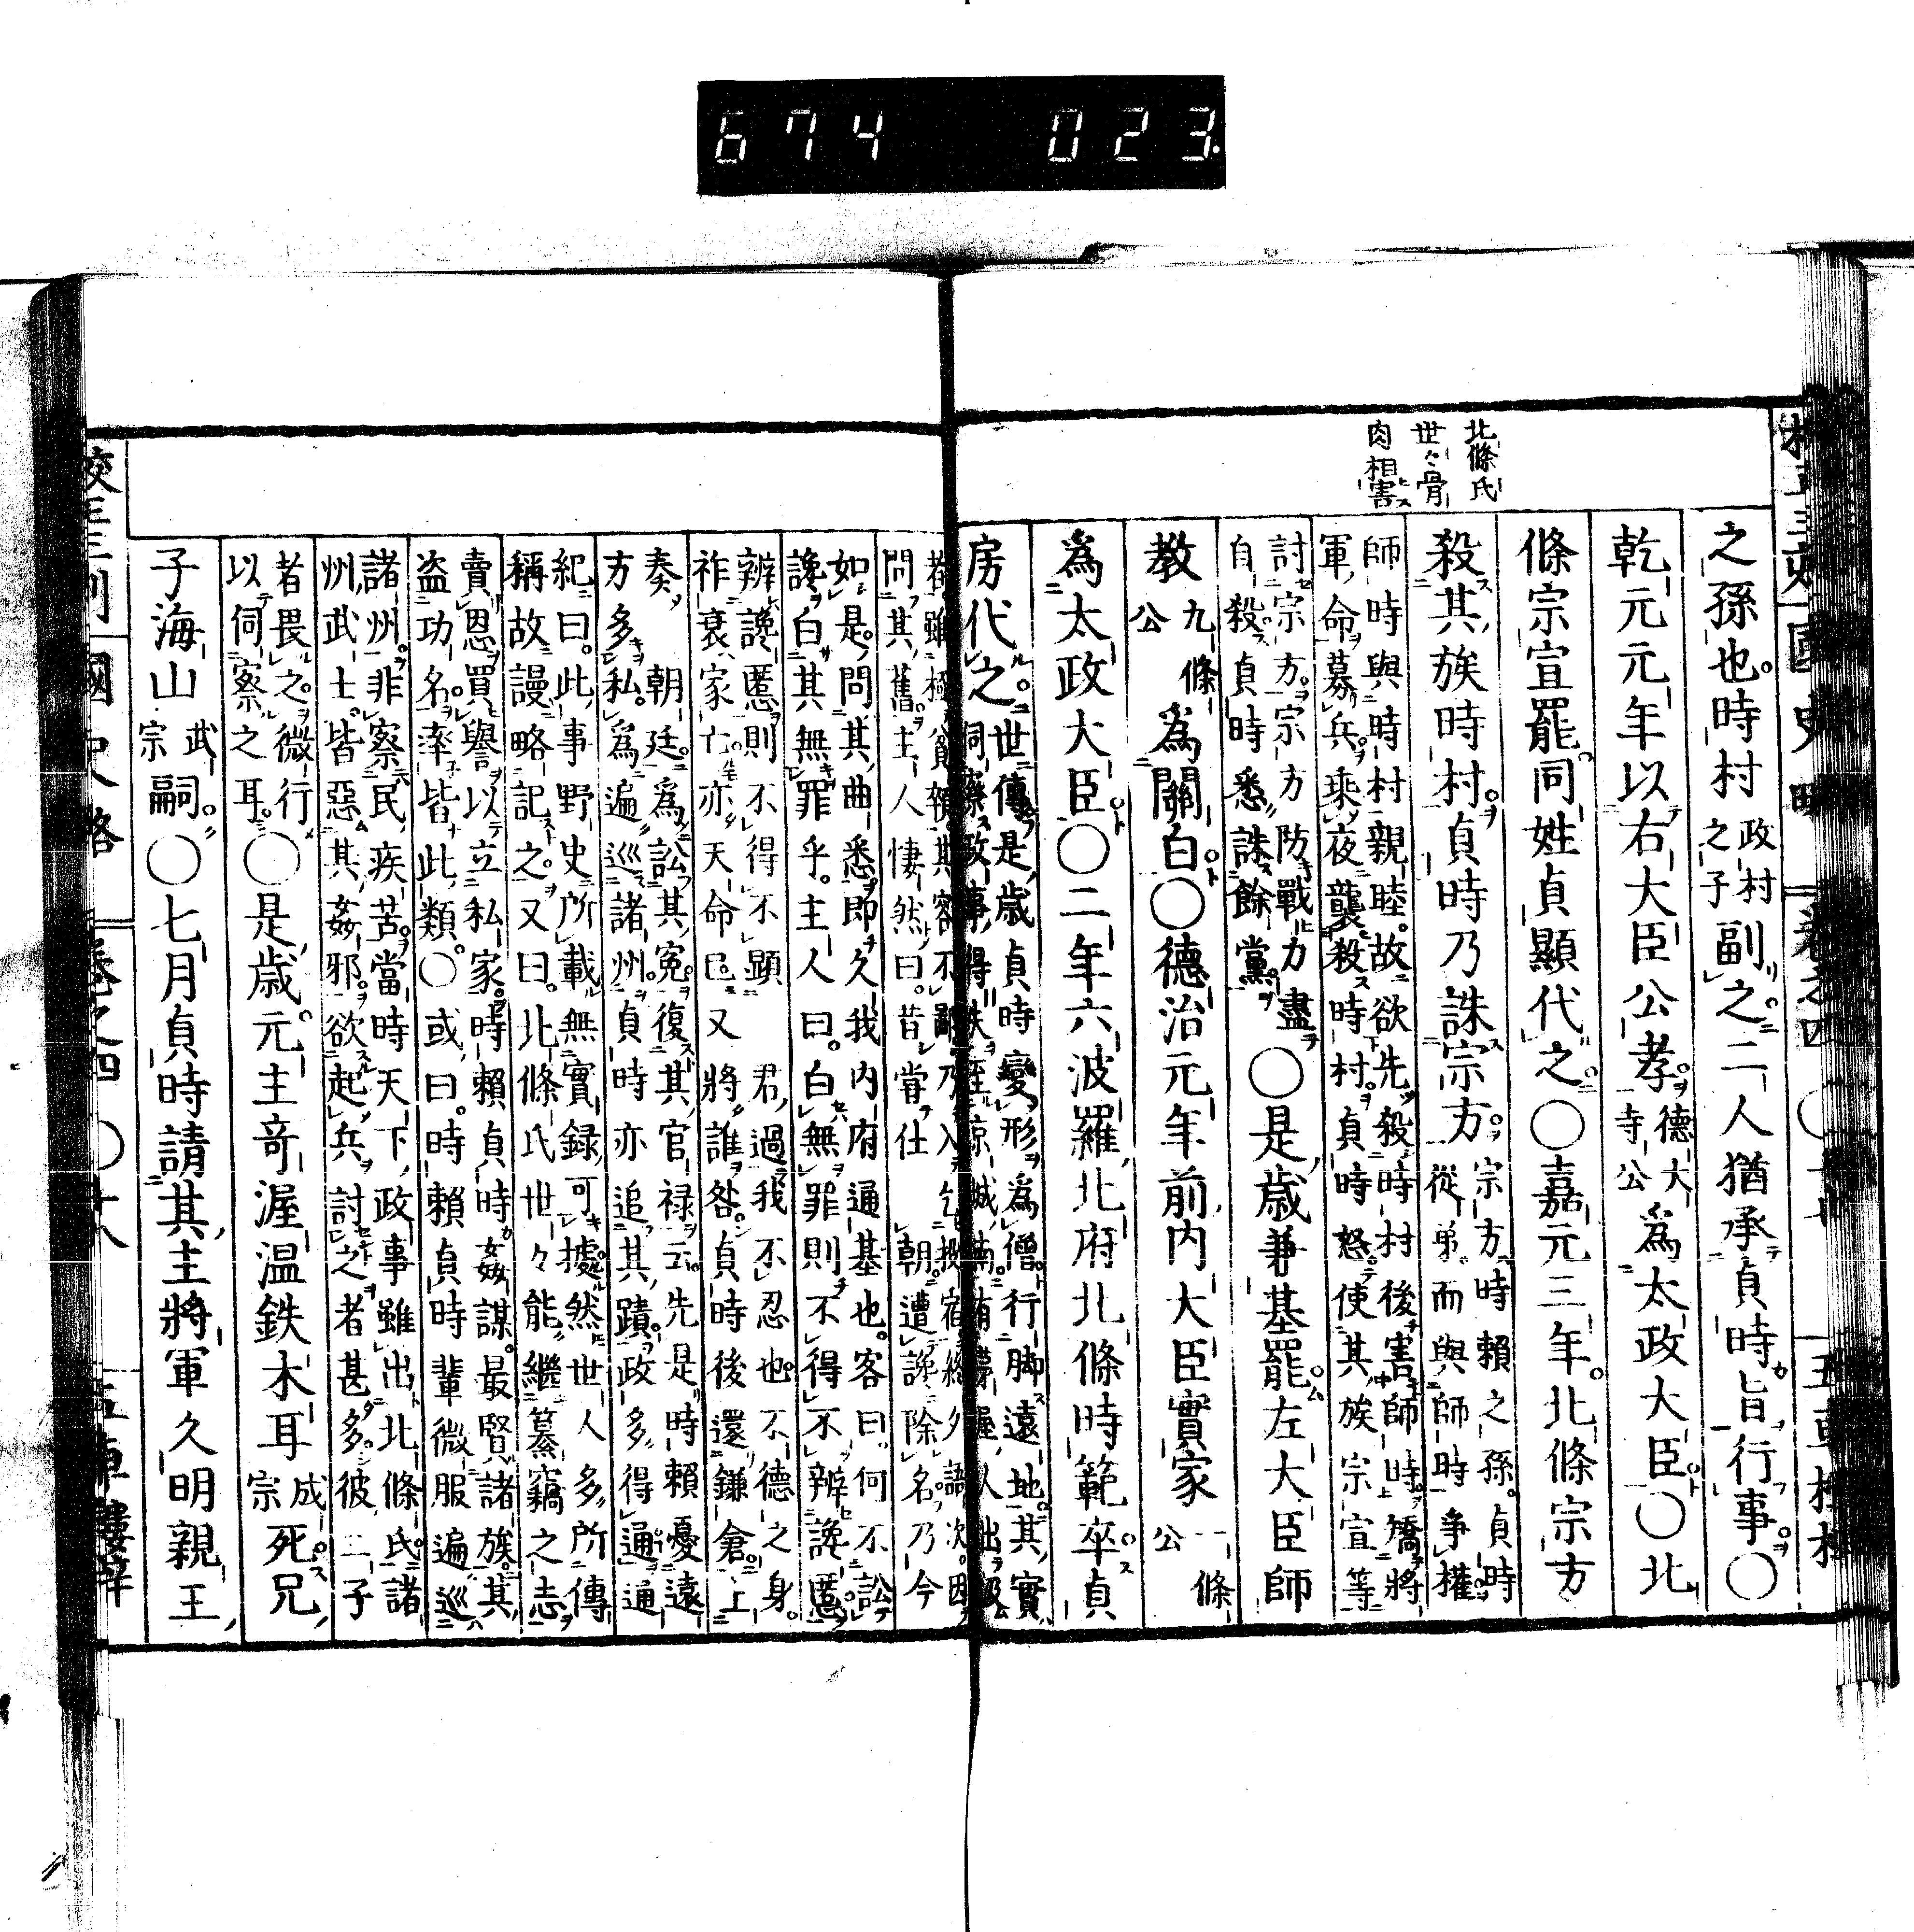 674 023
北條氏
世々骨
肉相害
之孫也時村政村之子副之二人猶承貞時旨行事〇
乾元元年以右大臣公孝德大寺公爲太政大臣〇北
條宗宣罷同姓貞顯代之〇嘉元三年北條宗方
殺其族時村貞時乃誅宗方宗方時賴之孫貞時
從弟而與師時爭權
師時與時村親睦故欲先殺時村後害師時矯將
軍命募兵乘夜襲殺時村貞時怒使其族宗宣等
討宗方宗方防戰力盡
自殺貞時悉誅餘黨〇是歳兼基罷左大臣師
教九條公爲關白〇德治元年前内大臣實家一條公
爲太政大臣〇二年六波羅北府北條時範卒貞
房代之世傳是歳貞時變形爲僧行脚遠地其實
伺察政事得失
者雖極貧
問其舊主人悽然曰昔嘗仕朝遭讒除名乃今
如是問其曲悉即久我内府通基也客曰何不訟
讒白其無罪乎主人曰白無罪則不得不辨讒慝
辨讒慝則不得不顯君過我不忍也不德之身
祚衰家亡亦天命已又將誰咎貞時後還鎌倉上
奏朝廷爲訟其冤復其官禄云先是時賴憂遠
方多私爲遍巡諸州貞時亦追其蹟政多得通通
紀曰此事野史所載無實録可據然世人多所傳
稱故謾略記之又曰北條氏世々能繼簒竊之志
賣恩買譽以立私家時賴貞時姦謀最賢諸族其
盗功名率皆此類〇或曰時賴貞時輩微服遍巡
諸州非察民疾苦當時天下政事雖出北條氏諸
州武士皆惡其姦邪欲起兵討之者甚多彼二子
者畏之微行
以伺察之耳〇是歳元主竒渥温鉄木耳成宗死兄
子海山武宗嗣〇七月貞時請其主將軍久明親王